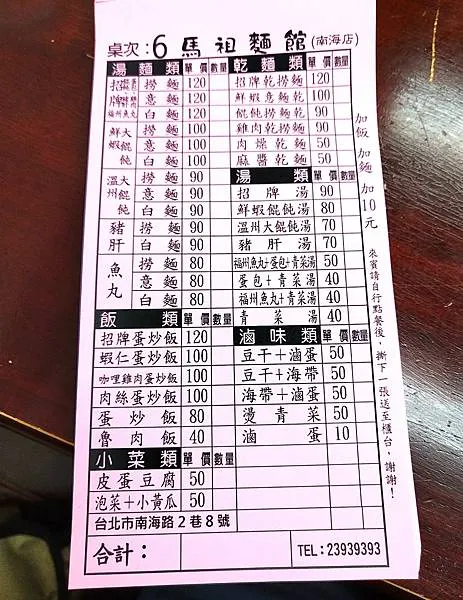 桌次：6 馬祖麵館(南海店)
湯麵類 單價 數量
招牌 福州魚丸 撈麵 120
意麵 120
白麵 120
鮮蝦大餛飩 撈麵 100
意麵 100
白麵 100
溫州大餛飩 撈麵 90
意麵 90
白麵 90
豬肝 撈麵 90
白麵 90
魚丸 撈麵 80
意麵 80
白麵 80
飯類 單價 數量
招牌蛋炒飯 120
蝦仁蛋炒飯 100
咖哩雞肉蛋炒飯 100
肉絲蛋炒飯 100
蛋炒飯 80
魯肉飯 40
小菜類 單價 數量
皮蛋豆腐 50
泡菜+小黃瓜 50
台北市南海路2巷8號
合計：
乾麵類 單價 數量
招牌乾撈麵 120
鮮蝦意麵乾 100
餛飩撈麵乾 90
雞肉乾撈麵 90
肉燥乾麵 50
麻醬乾麵 50
湯類 單價 數量
招牌湯 90
鮮蝦餛飩湯 80
溫州大餛飩湯 70
豬肝湯 70
福州魚丸+蛋包+青菜湯 50
蛋包+青菜湯 40
福州魚丸+青菜湯 40
青菜湯 40
滷味類 單價 數量
豆干+滷蛋 50
豆干+海帶 50
海帶+滷蛋 50
燙青菜 50
滷蛋 10
TEL：23939393
加飯 加麵 加10元
來賓請自行點餐後，撕下一張送至櫃台，謝謝！